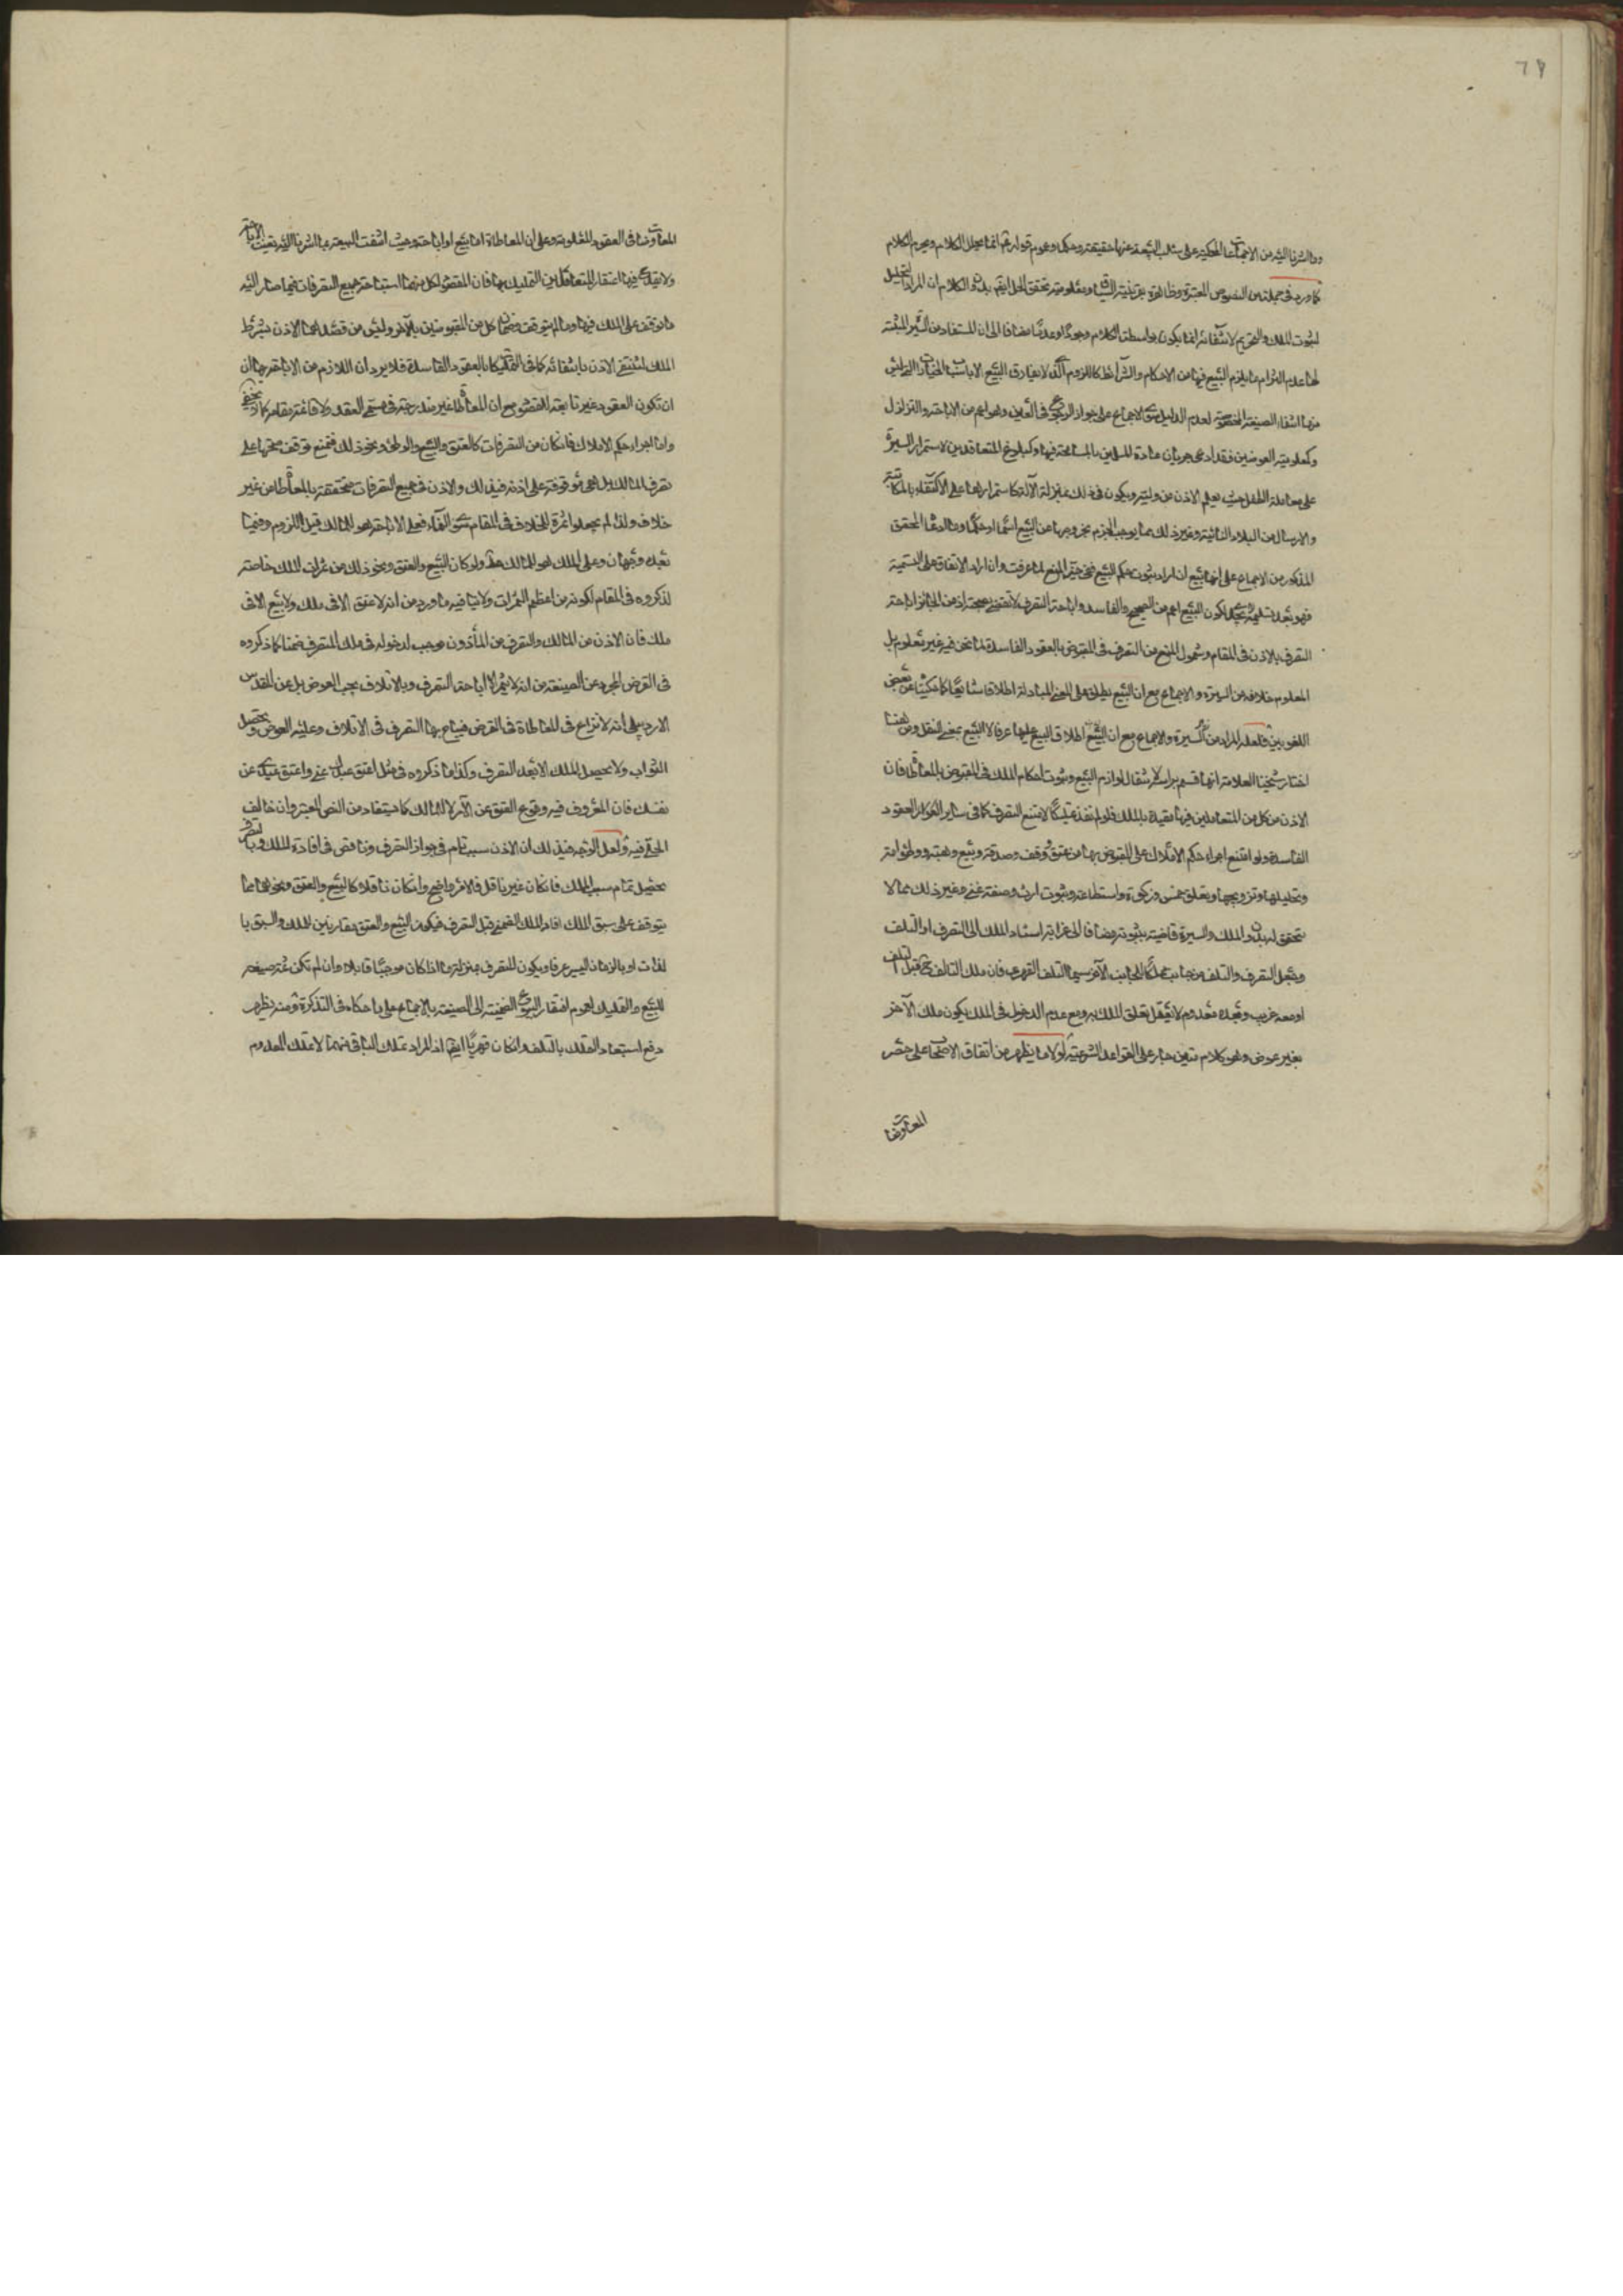 وما اشرنا اليه من الاجماعات المحكية على سلب البيعية عنها حقيقة وحكما وعموم قوله ع انما يحلل الكلام ويحرم الكلام
كما ورد في جملة من النصوص المعتبرة وظاهره بقرينة السياق ومعلومية تحقق الحل ايضا بدون الكلام ان المراد التحليل
لثبوت الملك والتحريم لانتفائه انما يكون بواسطة الكلام وجودا وعدما مضافا الى ان المستفاد من السيرة المثبتة
لها عدم التزام ما يلزم البيع فيها من الاحكام والشرائط كاللزوم الذي لا يفارق البيع الا باسباب الخيارات التي ليس
منها انتفاء الصيغة المخصوصة لعدم الدليل سوى الاجماع على جواز الرجوع في العين وهو اعم من الاباحة والتزلزل
وكمعلومية العوضين فقد ادعى جريان عادة المسلمين بالمسامحة فيها وكبلوغ المتعاقدين لاستمرار السيرة
على معاملة الطفل حيث يعلم الاذن من وليه ويكون في ذلك بمنزلة الآلة كاستمرارها على الاكتفاء بالمكاتبة
والارسال من البلاد النائية وغير ذلك مما يوجب الجزم بخروجها عن البيع اسما او حكما وما ادعاه المحقق
المذكور من الاجماع على انها بيع ان اراد ثبوت حكم البيع ففي حيز المنع لما عرفت وان اراد الاتفاق على التسمية
فهو بعد تسليمه لا يجدي لكون البيع اعم من الصحيح والفاسد واباحة التصرف لا تقتضي صحته اذ من الجائز اباحة
التصرف بالاذن في المقام وشمول المنع من التصرف في المقبوض بالعقود الفاسدة لما نحن فيه غير معلوم بل
المعلوم خلافه من السيرة والاجماع مع ان البيع يطلق على المعنى المبادلة اطلاقا شايعا كما حكيناه عن بعض
اللغويين فلعله المراد من السيرة والاجماع مع ان اطلاق البيع عليها عرفا لا البيع بمعنى النقل ومن هنا
اختار شيخنا العلامة انها قسم براسه لانتفاء لوازم البيع وثبوت احكام الملك في المقبوض بالمعاطاة فان
الاذن من كل من المتعاملين فيها مقيدة بالملك فلو لم تفد تمليكا لامتنع التصرف كما في ساير افراد العقود
الفاسدة ولو امتنع اجراء حكم الاملاك على المقبوض بها من عتق ووقف وصدقة وبيع وهبة ووطؤ امة
وتحليلها وتزويجها وتعلق خمس وزكوة واستطاعة وثبوت ارث وصفة غنى وغير ذلك مما لا
يتحقق له بدون الملك والسيرة قاضية بثبوته مضافا الى غرابة استناد الملك الى التصرف او التلف
وجعل التصرف والتلف من جانب مملكا للجانب الآخر سيما التلف القهري فان ملك التالف ح قبل التلف
او معه غريب وبعده معدوم لا يعقل تعلق الملك به ومع عدم الدخول في الملك يكون ملك الآخر
بغير عوض وهو كلام متين جار على القواعد الشرعية لولا ما يظهر من اتفاق الاصحاب على حصر
المعاوضات
المعاوضات في العقود المعلومة وعلى ان المعاطاة اما بيع او اباحة وحيث انتفت البيعية بما اشرنا اليه تعينت الاباحة
ولا يقدح فيها اعتقاد المتعاملين التمليك بها فان المقصود لكل منهما استباحة جميع التصرفات فيما صار اليه
ما توقف على الملك فيها وما لم يتوقف وضمان كل من المقبوضين بالآخر وليس من قصدهما الاذن بشرط
الملك لينتفي الاذن بانتفائه كما في التمليكات بالعقود الفاسدة فلا يرد ان اللازم من الاباحة بها ان
ان تكون العقود غير تابعة للقصود مع ان المعاطاة غير مندرجة في مسمى العقد ولا قائمة مقامه كما لا يخفى
واما اجراء حكم الاملاك فان كان من التصرفات كالعتق والبيع والوطئ ونحو ذلك فنمنع توقف صحتها على
تصرف المالك بل هي موقوفة على اذنه في ذلك والاذن في جميع التصرفات متحققة بالمعاطاة من غير
خلاف ولذا لم يجعلوا ثمرة الخلاف في المقام سوى النماء فعلى الاباحة هو للمالك قبل اللزوم وفيما
بعده وجهان وعلى الملك هو للمالك مط ولو كان البيع والعتق ونحو ذلك من ثمرات الملك خاصة
لذكروه في المقام لكونه من اعظم الثمرات ولا ينافيه ما ورد من انه لا عتق الا في ملك ولا بيع الا في
ملك فان الاذن من المالك والتصرف من المأذون موجب لدخوله في ملك المتصرف ضمنا كما ذكروه
في القرض المجرد عن الصيغة من انه لا يثمر الا اباحة التصرف وبالاتلاف يجب العوض بل عن المقدس
الاردبيلي انه لا نزاع في المعاطاة في القرض فيباح بها التصرف في الاتلاف وعليه العوض ويحصل
الثواب ولا يحصل الملك الا بعد التصرف وكذا ما ذكروه في مثل اعتق عبدك عني واعتق عبدي عن
نفسك فان المعروف فيه وقوع العتق عن الآمر لا المالك كما يستفاد من النص المعتبر وان خالف
الحلي فيه ولعل الوجه في ذلك ان الاذن سبب تام في جواز التصرف وناقص في افادة الملك وبالتصرف
يحصل تمام سبب الملك فان كان غير ناقل فالامر واضح وان كان ناقلا كالبيع والعتق ونحوهما مما
يتوقف على سبق الملك افاد الملك الضمني قبل التصرف فيكون البيع والعتق مقارنين للملك والسبق با
لذات او بالزمان اليسير عرفا ويكون المتصرف بمنزلة ما اذا كان موجبا قابلا وان لم تكن ثمة صيغة
للبيع والتمليك لعموم افتقار البيوع الضمنية الى الصيغة بالاجماع على ما حكاه في التذكرة ومنه يظهر
دفع استبعاد التملك بالتلف وان كان قهريا ايضا اذ المراد تملك الباقي منهما لا تملك المعدوم